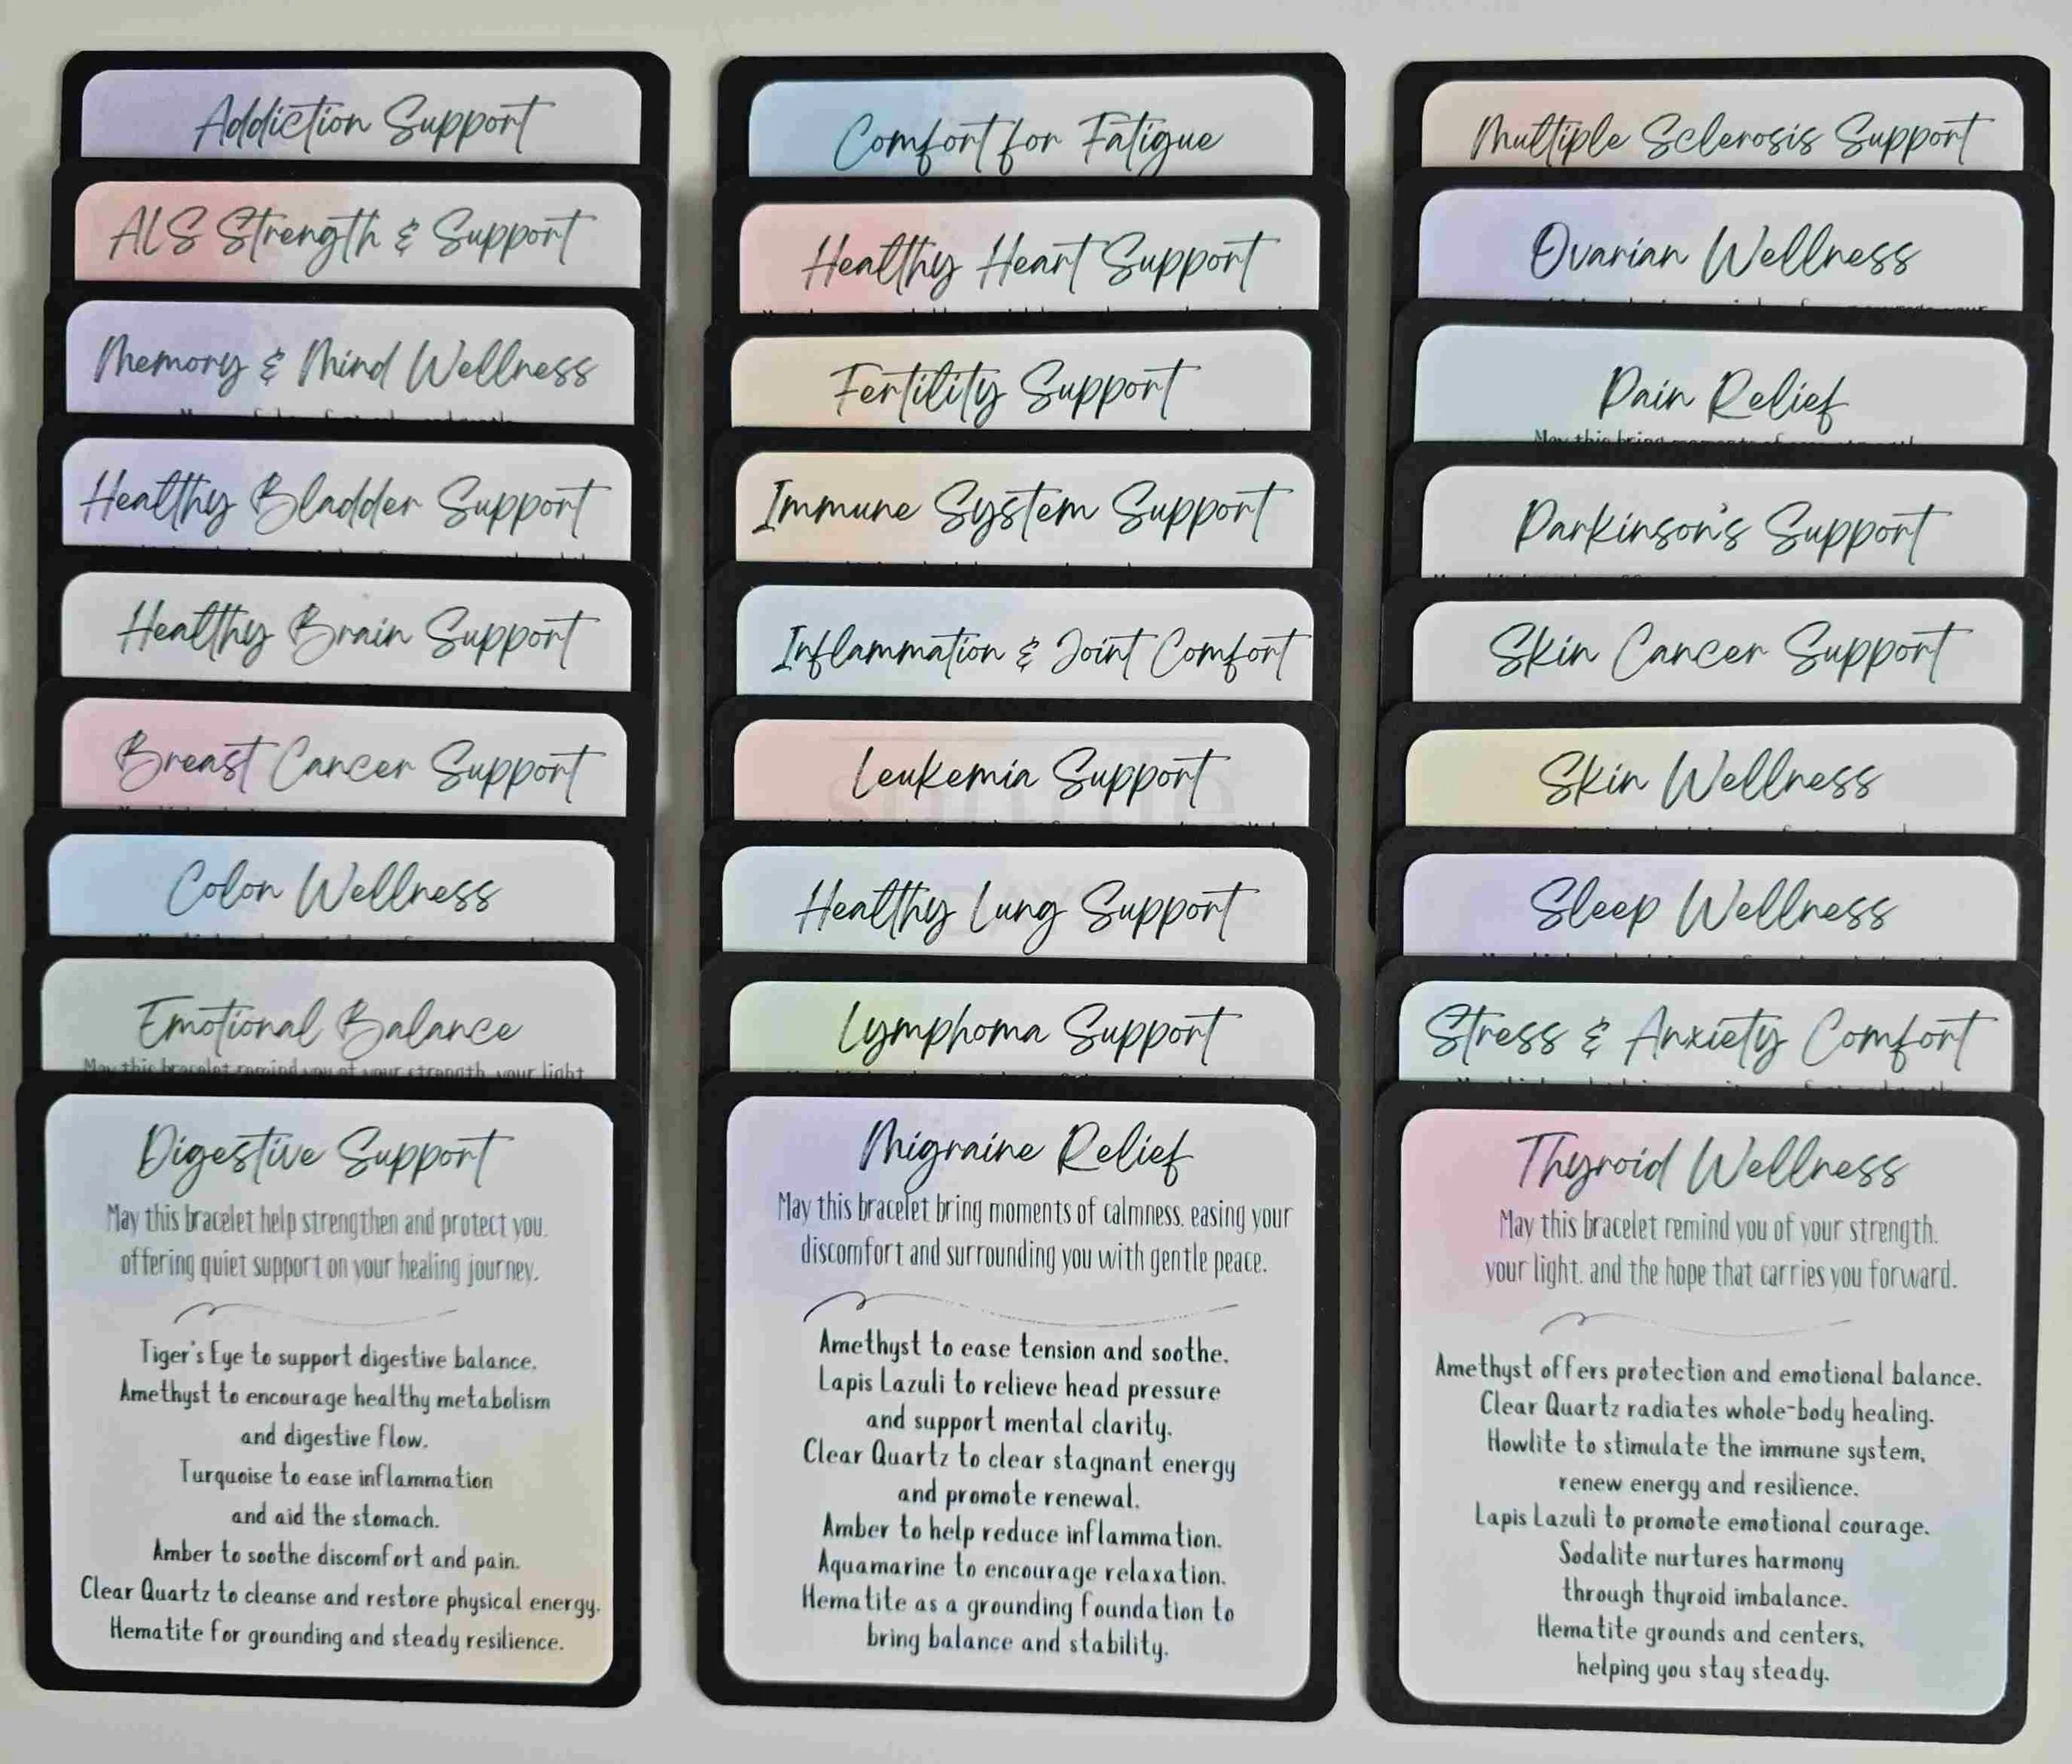 Addiction Support
ALS Strength & Support
Memory & Mind Wellness
Healthy Bladder Support
Healthy Brain Support
Breast Cancer Support
Colon Wellness
Emotional Balance
May this bracelet remind you of your strength, your light
Digestive Support
May this bracelet help strengthen and protect you,
offering quiet support on your healing journey.
Tiger's Eye to support digestive balance.
Amethyst to encourage healthy metabolism
and digestive flow.
Turquoise to ease inflammation
and aid the stomach.
Amber to soothe discomfort and pain.
Clear Quartz to cleanse and restore physical energy.
Hematite for grounding and steady resilience.
Comfort for Fatigue
Healthy Heart Support
Fertility Support
Immune System Support
Inflammation & Joint Comfort
Leukemia Support
Healthy Lung Support
Lymphoma Support
Migraine Relief
May this bracelet bring moments of calmness, easing your
discomfort and surrounding you with gentle peace.
Amethyst to ease tension and soothe.
Lapis Lazuli to relieve head pressure
and support mental clarity.
Clear Quartz to clear stagnant energy
and promote renewal.
Amber to help reduce inflammation.
Aquamarine to encourage relaxation.
Hematite as a grounding foundation to
bring balance and stability.
Multiple Sclerosis Support
Ovarian Wellness
Pain Relief
May this bring moments of
Parkinson's Support
Skin Cancer Support
Skin Wellness
Sleep Wellness
Stress & Anxiety Comfort
Thyroid Wellness
May this bracelet remind you of your strength,
your light, and the hope that carries you forward.
Amethyst offers protection and emotional balance.
Clear Quartz radiates whole-body healing.
Howlite to stimulate the immune system,
renew energy and resilience.
Lapis Lazuli to promote emotional courage.
Sodalite nurtures harmony
through thyroid imbalance.
Hematite grounds and centers,
helping you stay steady.